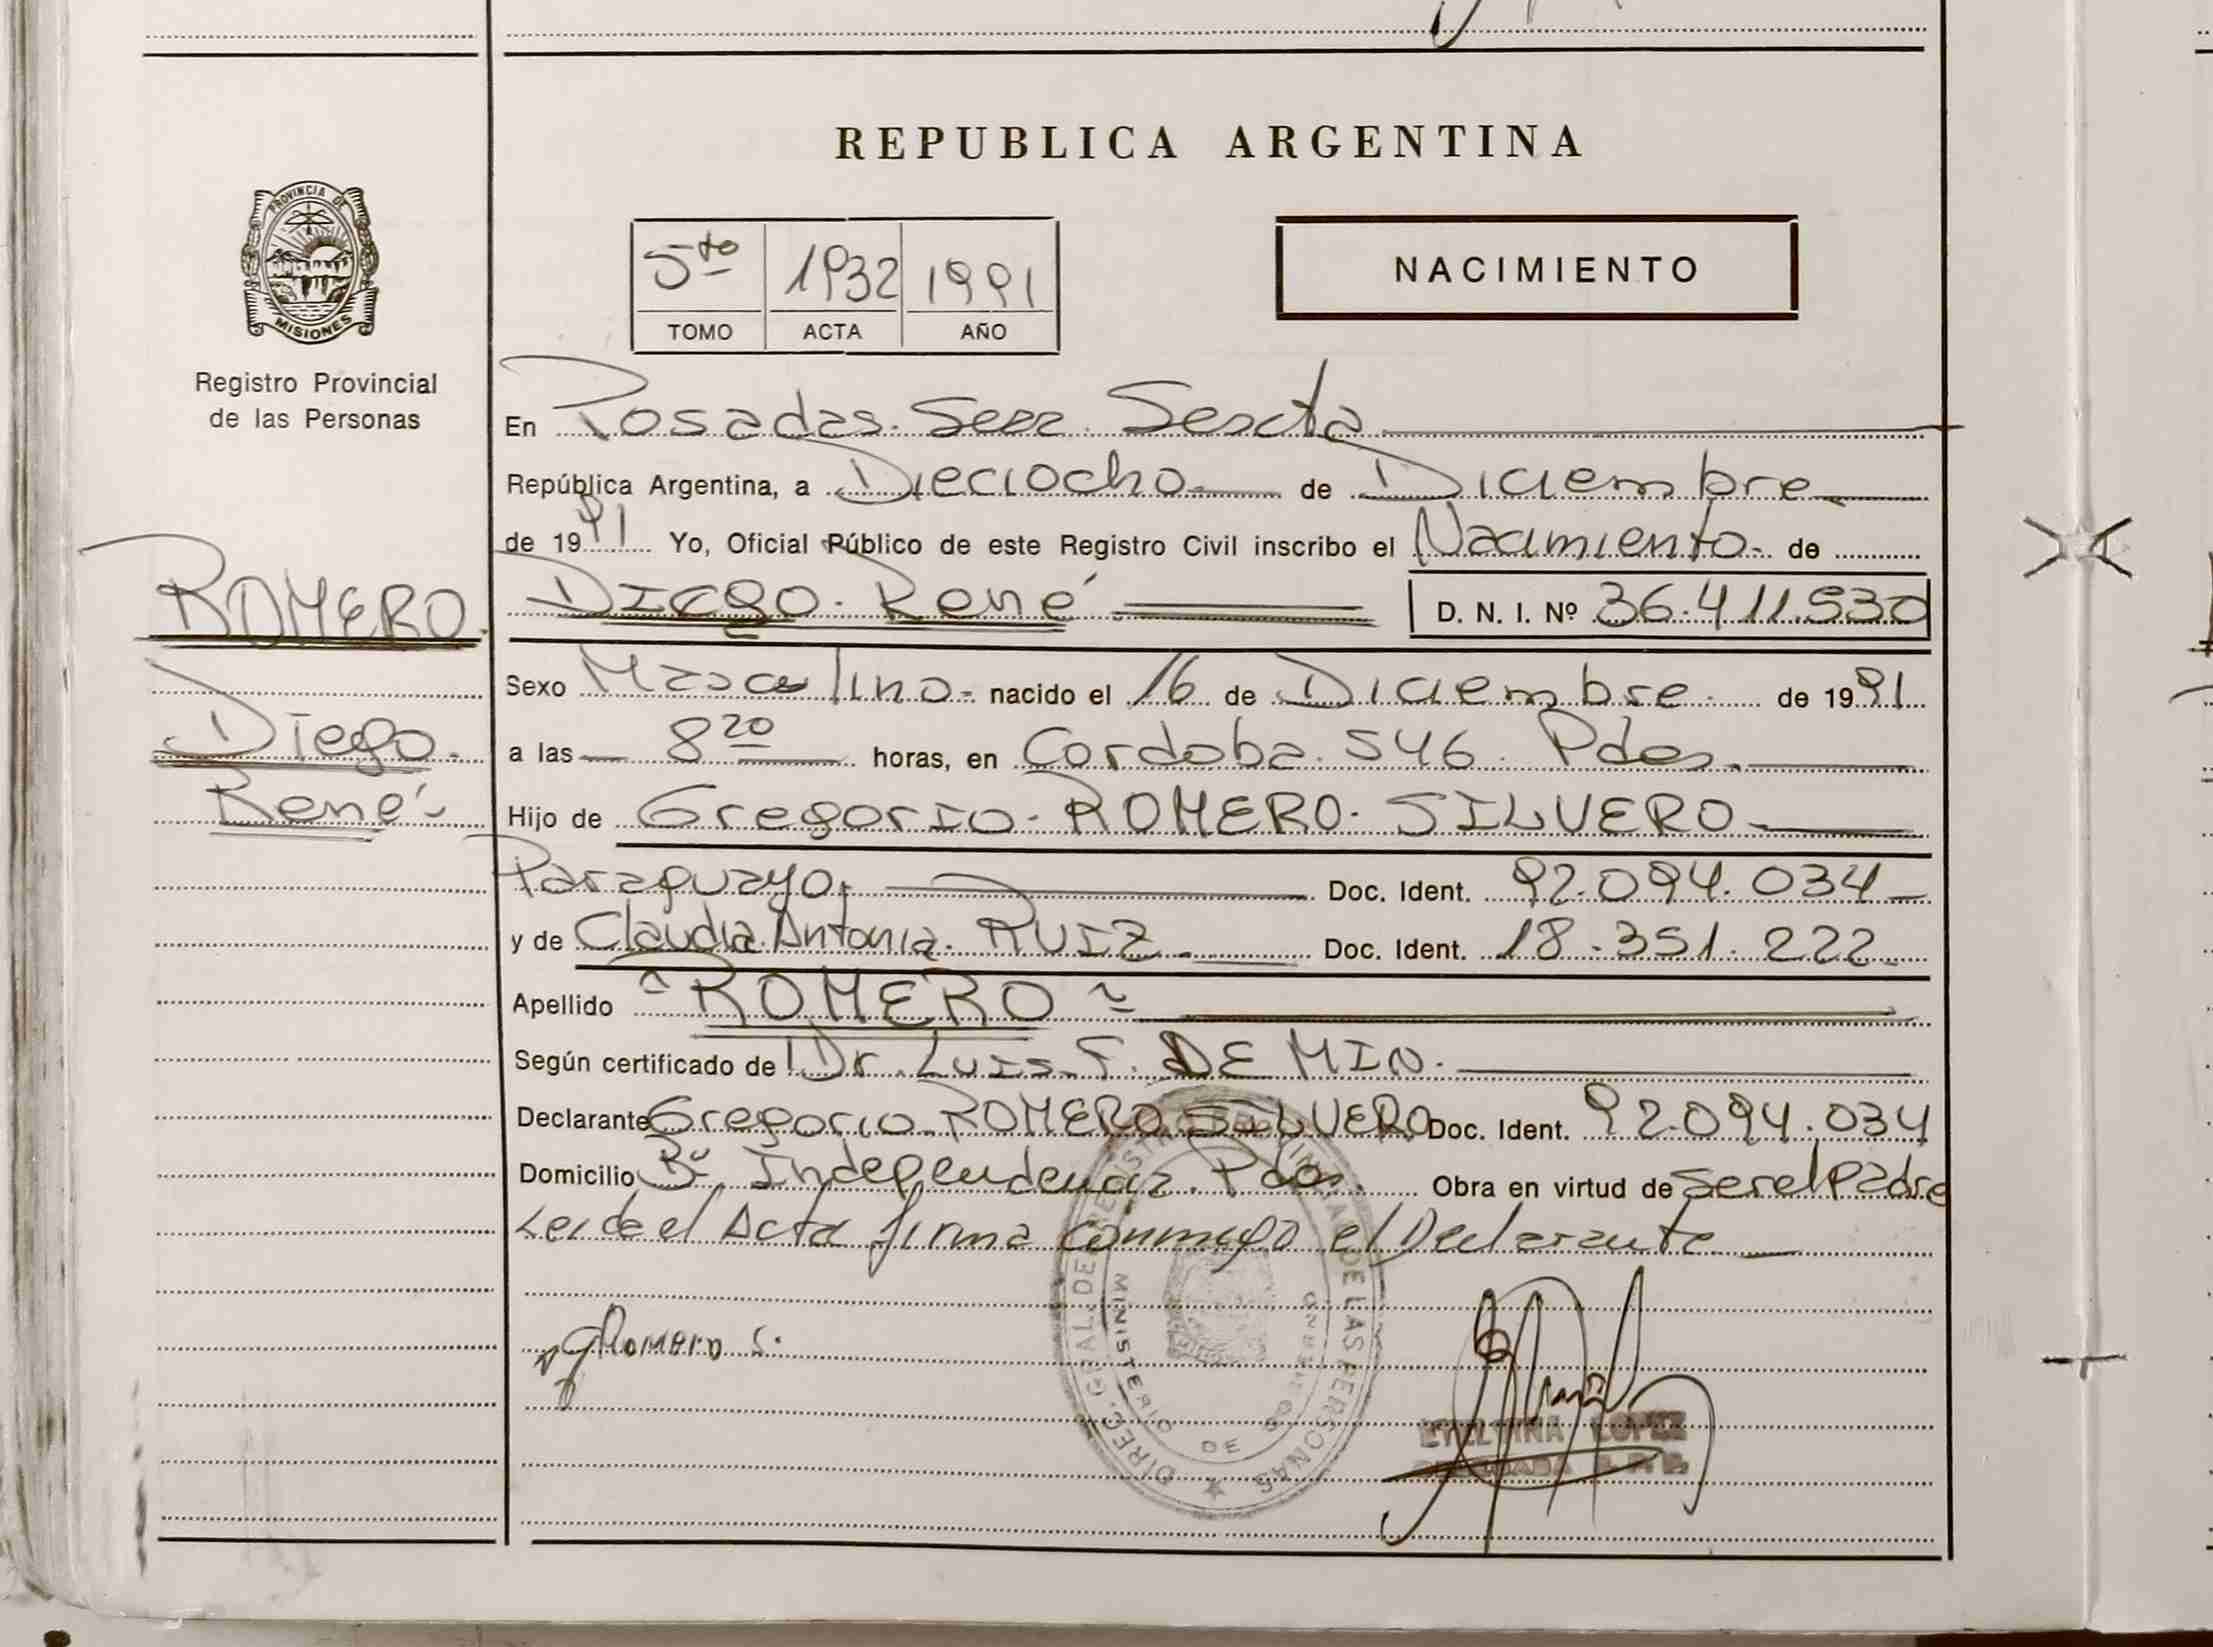 REPUBLICA ARGENTINA
PROVINCIA DE
MISIONES
Registro Provincial
de las Personas
5to 1932 1991
TOMO ACTA AÑO
NACIMIENTO
En Posadas. Secc. Sexcta
República Argentina, a Dieciocho de Diciembre
de 1991 Yo, Oficial Público de este Registro Civil inscribo el Nacimiento de
ROMERO.
Diego. René D. N. I. Nº 36.411.530
Sexo Masculino nacido el 16 de Diciembre de 1991
Diego.
a las 8 20 horas, en Cordoba. 546. Pdas.
René
Hijo de Gregorio. ROMERO. SILVERO
Paraguayo. Doc. Ident. 92.094.034
y de Claudia. Antonia. RUIZ. Doc. Ident. 18.351.222
Apellido "ROMERO"
Según certificado de Dr. Luis. F. DE MIN.
Declarante Gregorio. ROMERO. SILVERO Doc. Ident. 92.094.034
Domicilio Bº Independencia. Pdas. Obra en virtud de ser el Padre
Leida el Acta firma conmigo el Declarante
GRomero S.
DIREC. GRAL. DE REGISTRO PROVINCIAL DE LAS PERSONAS
MINISTERIO DE GOBIERNO
ETELVINA LOPEZ
DELEGADA R. P. P.